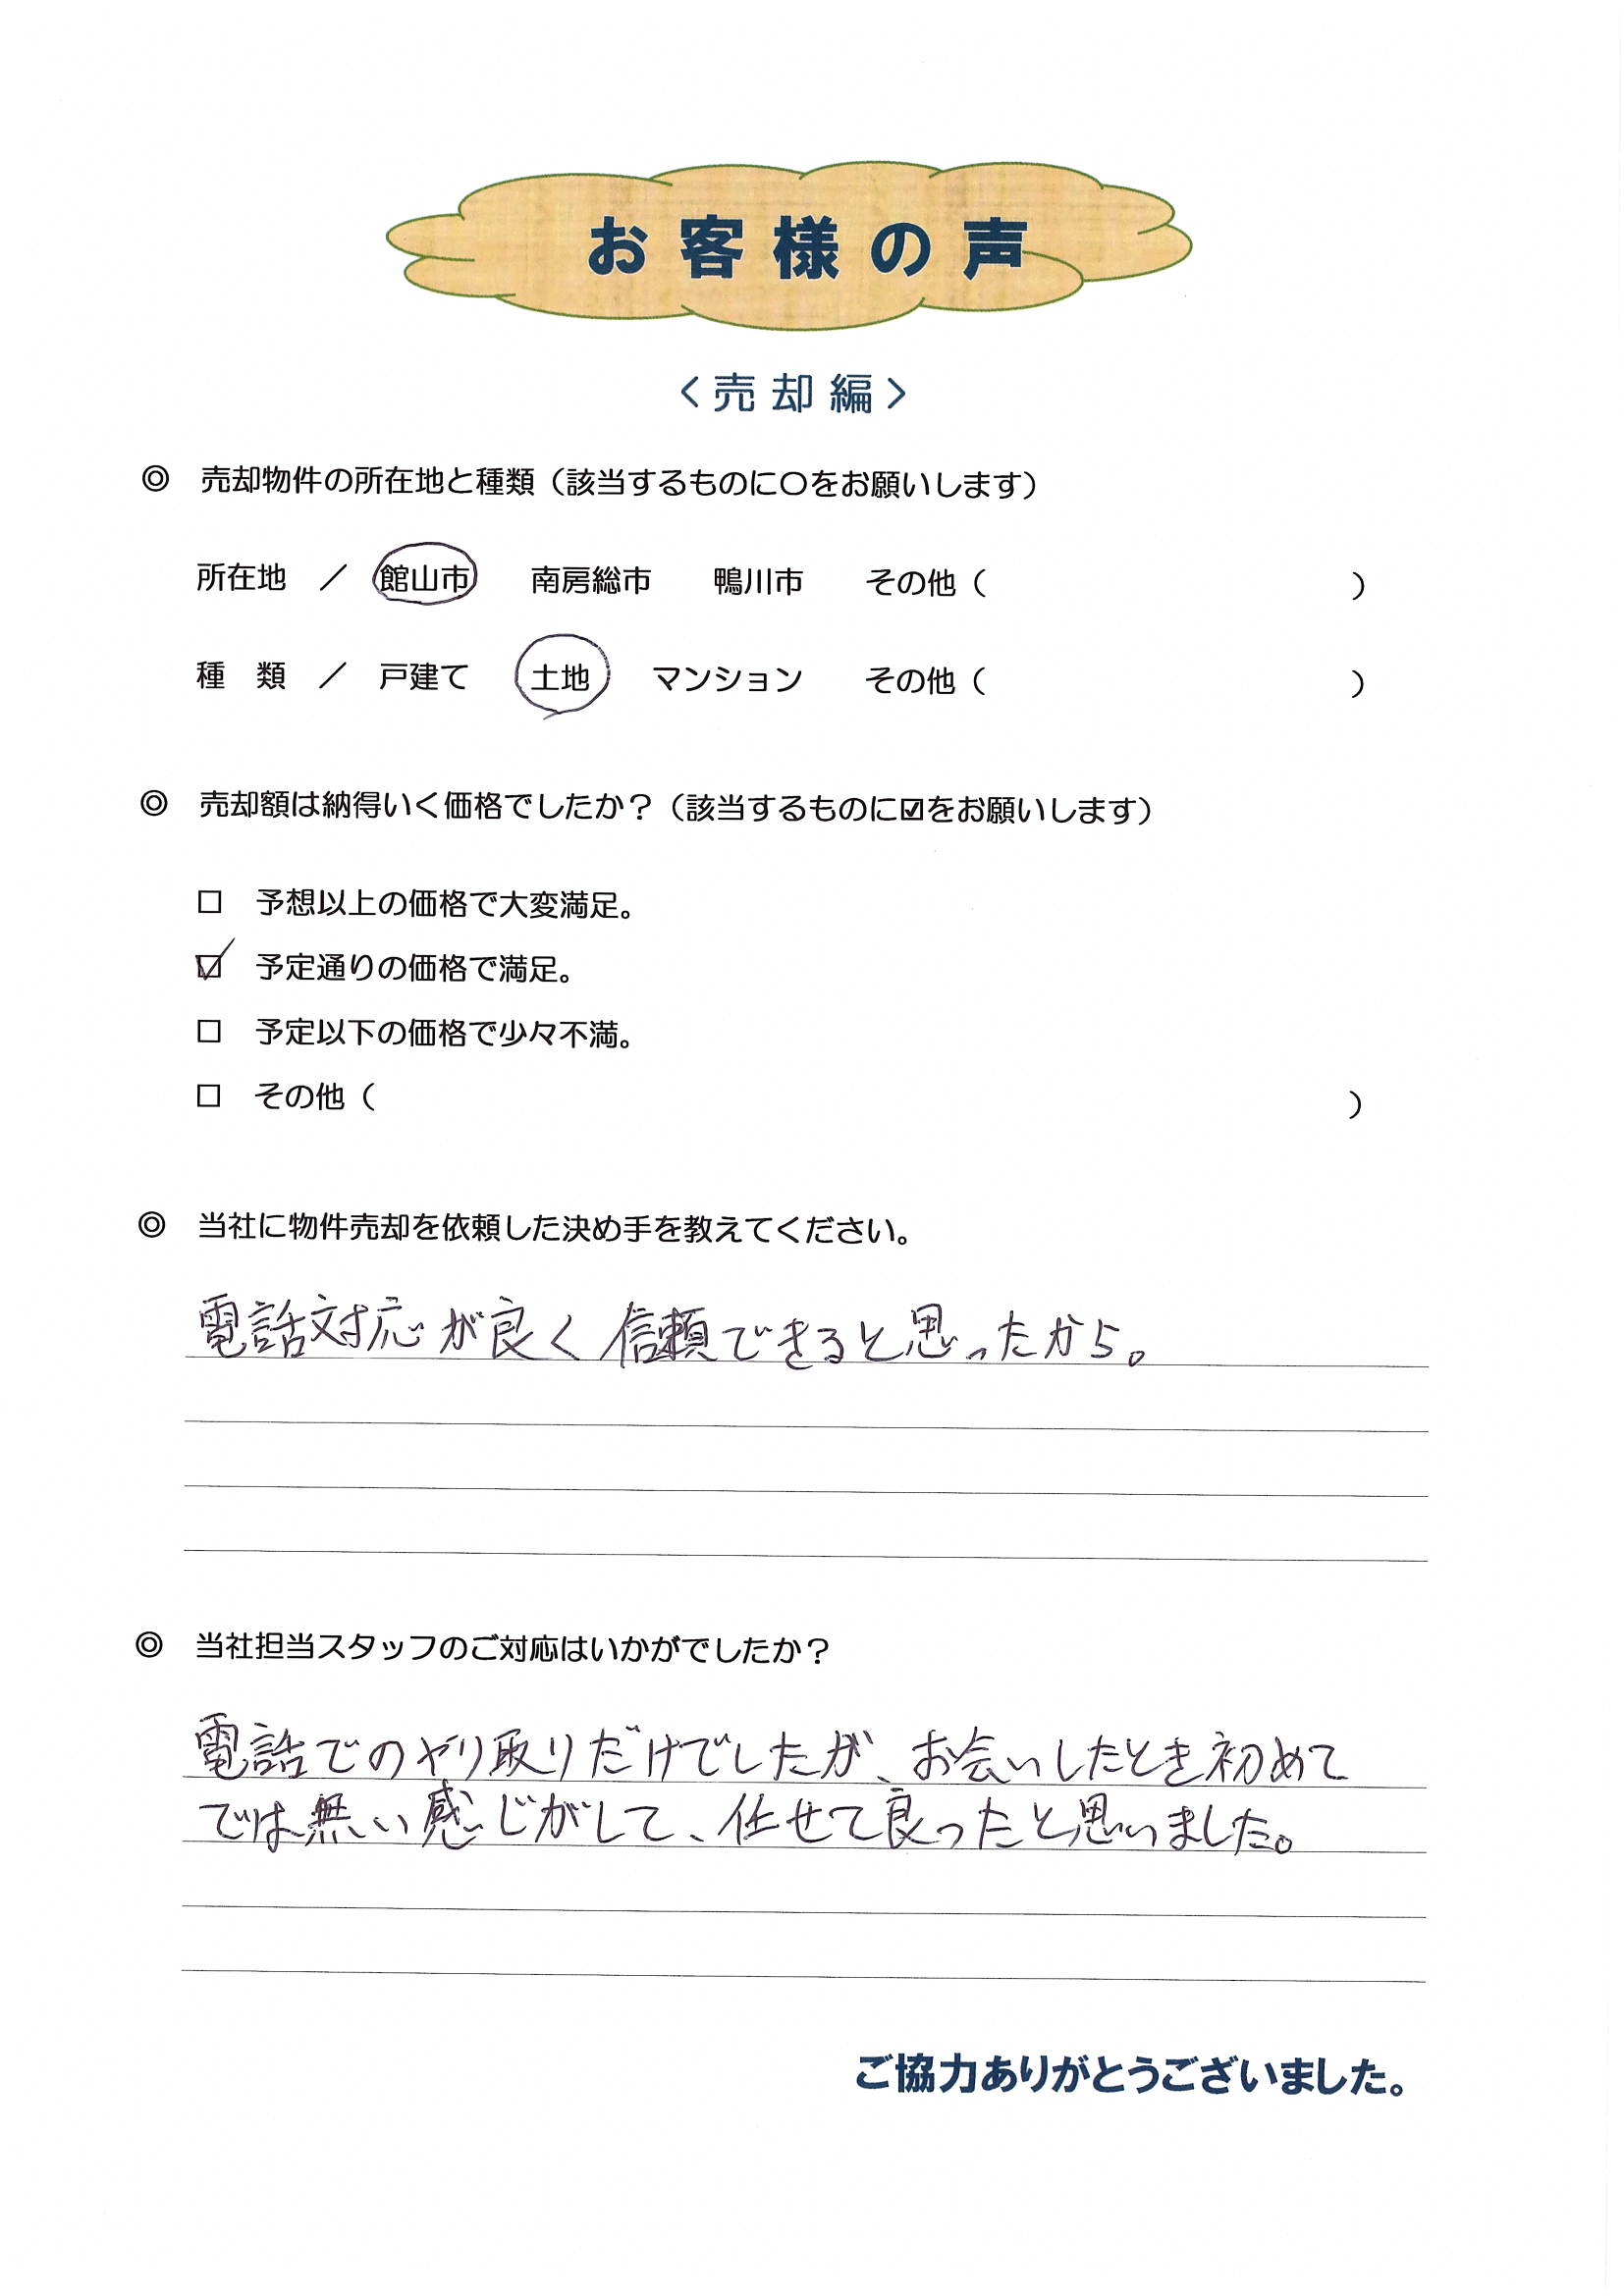 お客様の声
<売却編>
◎ 売却物件の所在地と種類（該当するものに〇をお願いします）
所在地 ／ 館山市 南房総市 鴨川市 その他（ ）
種 類 ／ 戸建て 土地 マンション その他（ ）
◎ 売却額は納得いく価格でしたか？（該当するものに☑をお願いします）
□ 予想以上の価格で大変満足。
☑ 予定通りの価格で満足。
□ 予定以下の価格で少々不満。
□ その他（ ）
◎ 当社に物件売却を依頼した決め手を教えてください。
電話対応が良く信頼できると思ったから。
◎ 当社担当スタッフのご対応はいかがでしたか？
電話でのやり取りだけでしたが、お会いしたとき初めて
では無い感じがして、任せて良ったと思いました。
ご協力ありがとうございました。